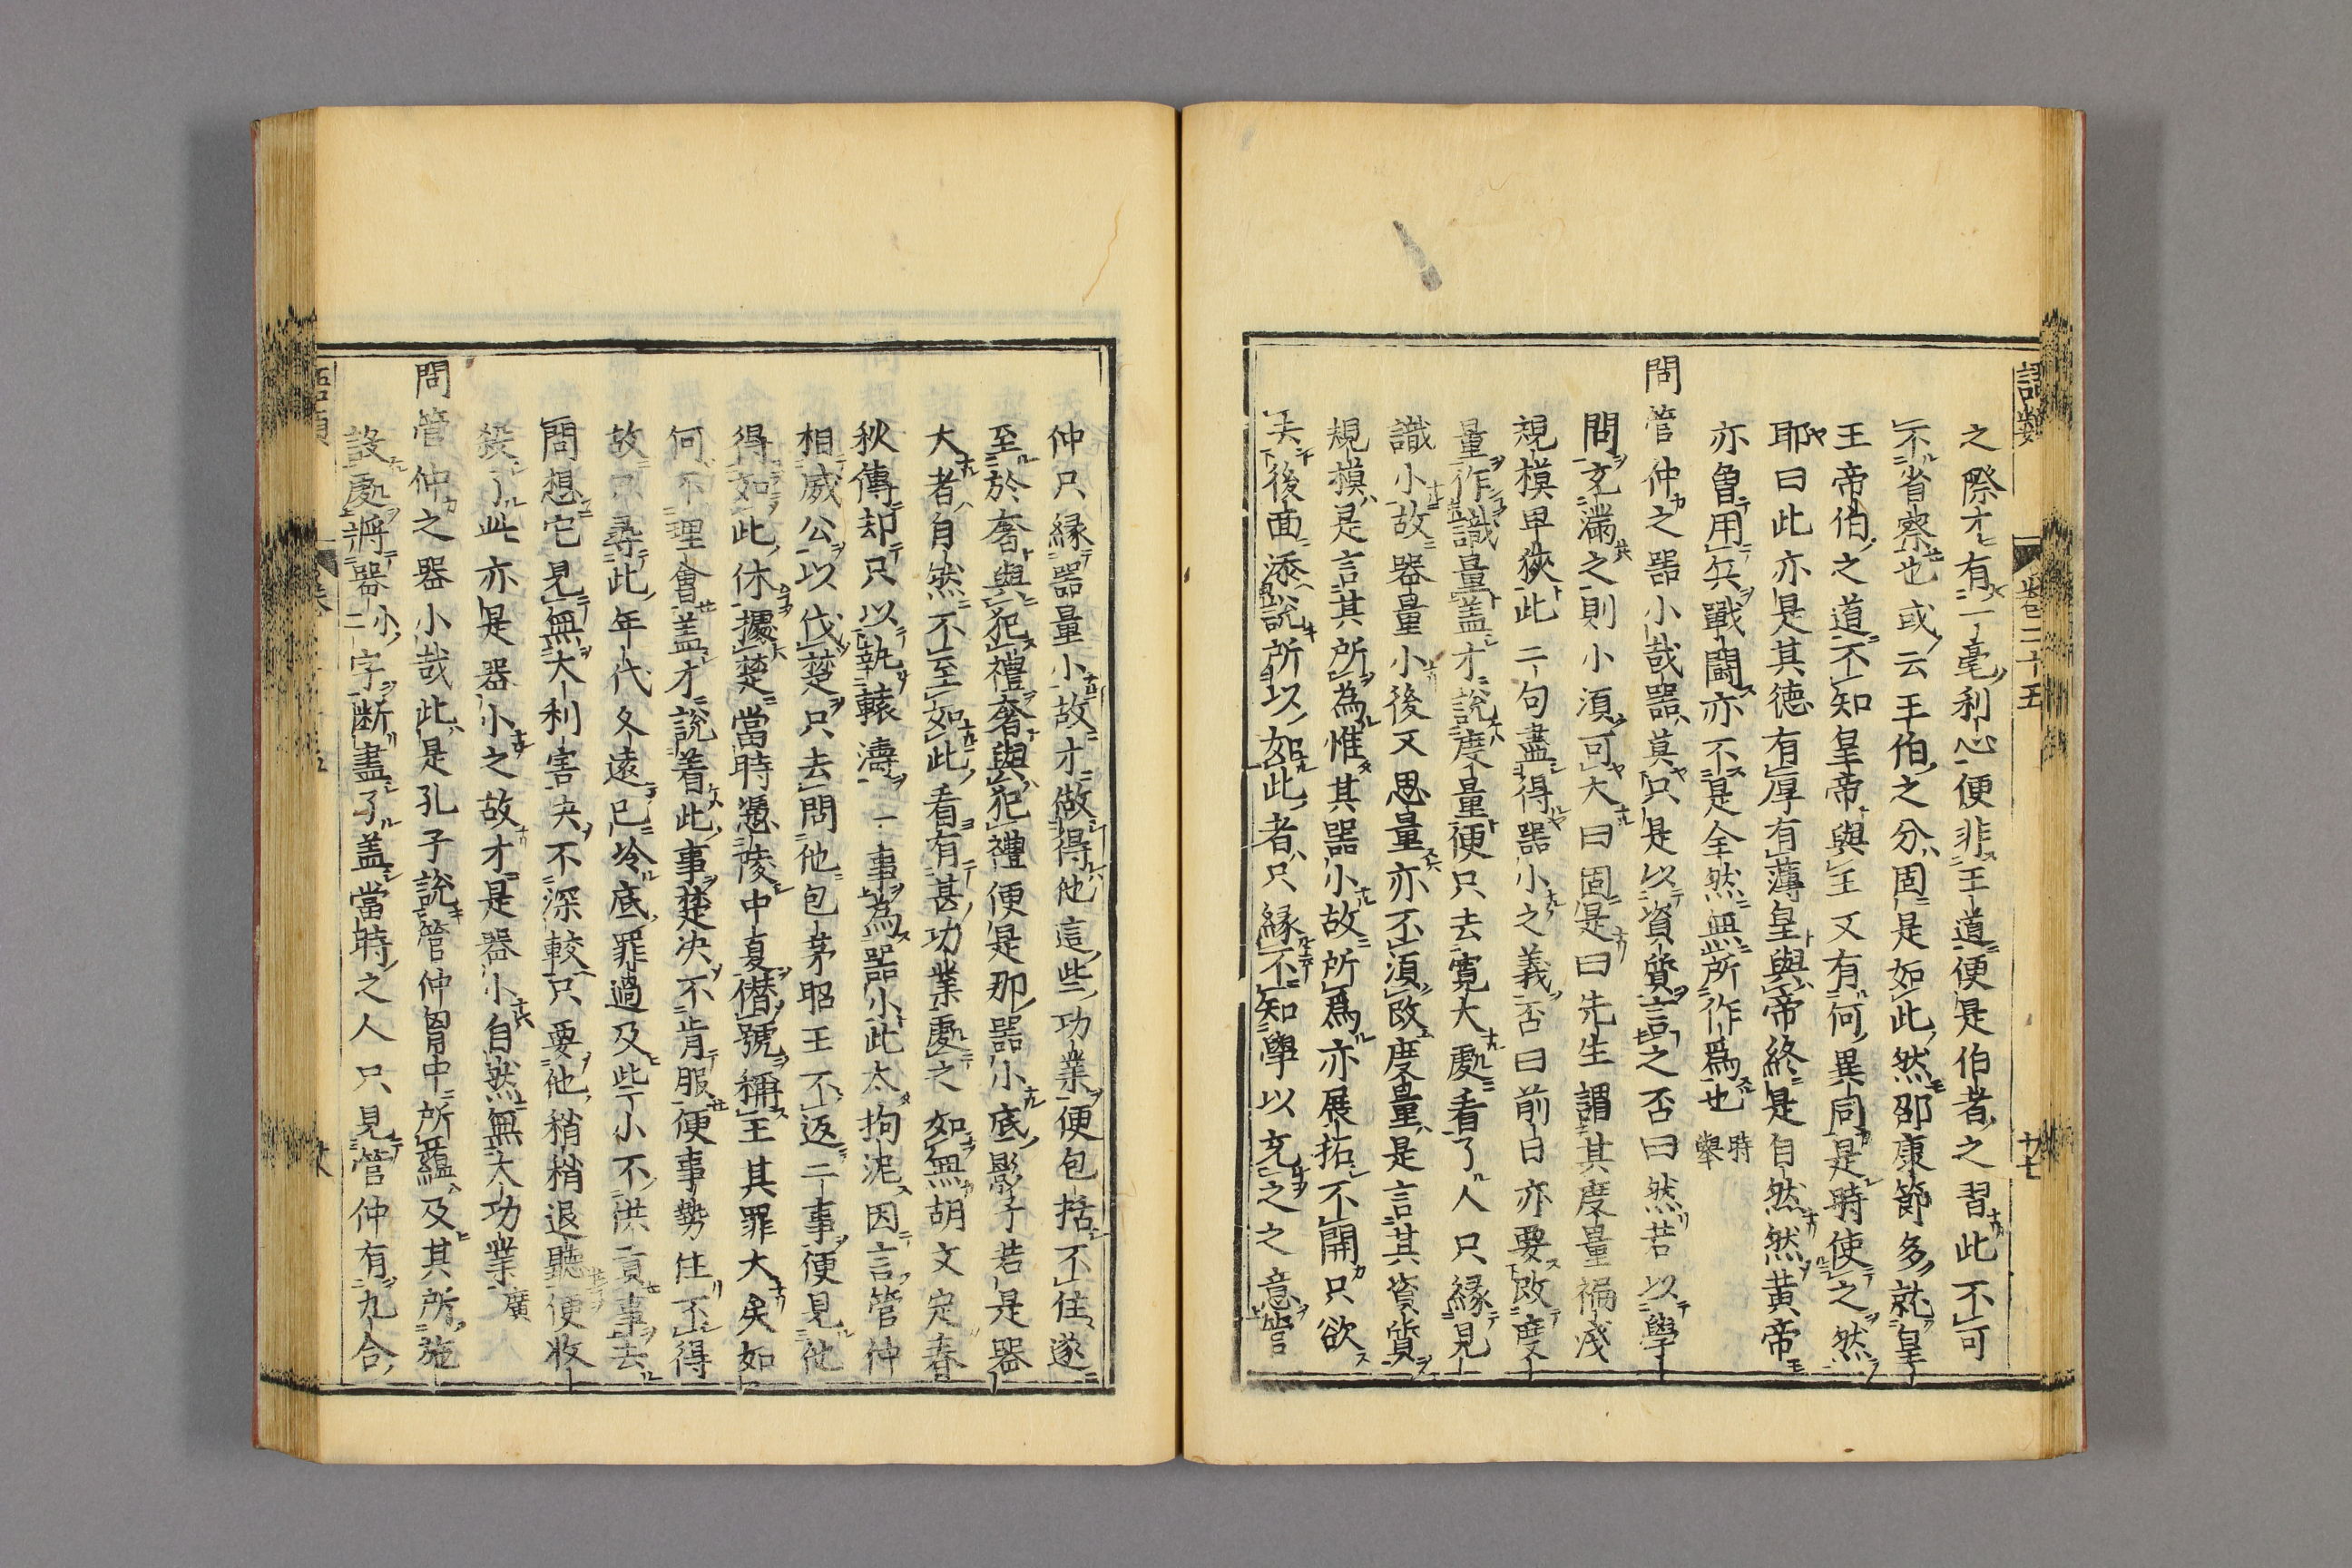 語類 卷二十五 十七
之際才有一毫利心便非王道便是伯者之習此不可
不省察也或云王伯之分固是如此然邵康節多就皇
王帝伯之道不知皇帝與王又有何異同是時使之然
耶曰此亦是其德有厚有薄皇與帝終是自然然黄帝
亦曾用兵戰鬭亦不是全然無所作爲也 時舉
問管仲之器小哉器莫只是以資質言之否曰然若以學
問充滿之則小須可大曰固是曰先生謂其度量褊淺
規模卑狹此二句盡得器小之義否曰前日亦要改度
量作識量盖才說度量便只去寛大處看了人只縁見
識小故器量小後又思量亦不須改度量是言其資質
規模是言其所為惟其器小故所爲亦展拓不開只欲
去後面添說所以如此者只縁不知學以充之之意管
仲只縁器量小故才做得他這些功業便包括不住遂
至於奢與犯禮奢與犯禮便是那器小底影子若是器
大者自然不至如此看有甚功業處之如無胡文定春
秋傳却只以執轅濤一事為器小此太拘泥因言管仲
相威公以伐楚只去問他包茅昭王不返二事便見他
得如此休據楚當時憑陵中夏僣號稱王其罪大矣如
何不理會盖才說着此事楚决不肯服便事勢住不得
故只尋此年代久遠已冷底罪過及些小不洪貢事去
問想它見無大利害决不深較只要他稍稍退聽便收
殺了此亦是器小之故才是器小自然無大功業 廣
問管仲之器小哉此是孔子說管仲胷中所蘊及其所施
設處將器小二字断盡了盖當時之人只見管仲有九合